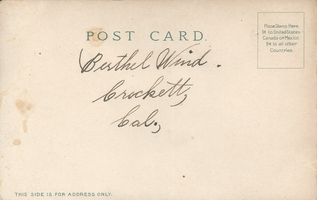 POST CARD.
Place Stamp Here.
1¢ to United States
Canada or Mexico
2¢ to all other
Countries.
Berthel Wind.
Crockett,
Cal.,
THIS SIDE IS FOR ADDRESS ONLY.